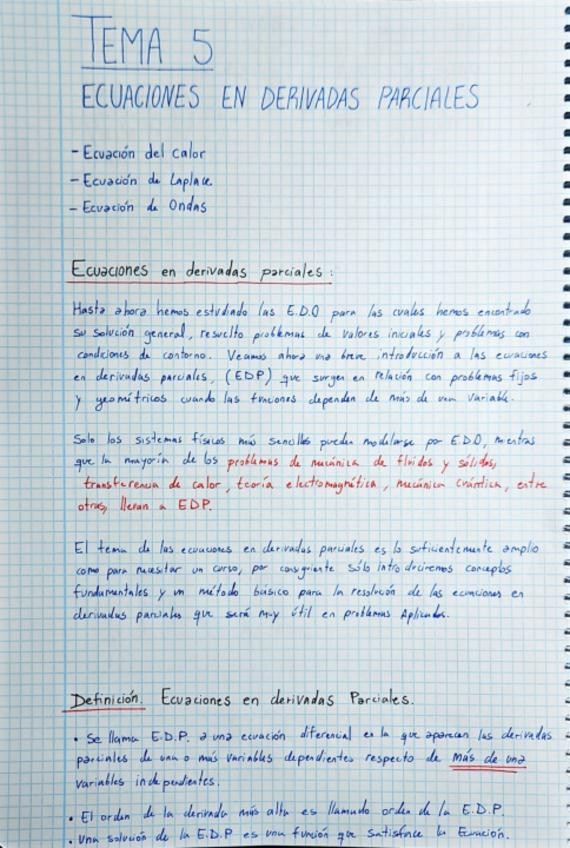 TEMA 5
ECUACIONES EN DERIVADAS PARCIALES
- Ecuación del calor
- Ecuación de Laplace
- Ecuación de Ondas
Ecuaciones en derivadas parciales:
Hasta ahora hemos estudiado las E.D.O para las cuales hemos encontrado
su solución general, resuelto problemas de valores iniciales y problemas con
condiciones de contorno. Veamos ahora una breve introducción a las ecuaciones
en derivadas parciales, (EDP) que surgen en relación con problemas fijos
y geométricos cuando las funciones dependen de más de una variable.
Solo los sistemas físicos más sencillos pueden modelarse por E.D.O, mientras
que la mayoría de los problemas de mecánica de fluidos y sólidos,
transferencia de calor, teoría electromagnética, mecánica cuántica, entre
otras, llevan a EDP.
El tema de las ecuaciones en derivadas parciales es lo suficientemente amplio
como para necesitar un curso, por consiguiente sólo introduciremos conceptos
fundamentales y un método básico para la resolución de las ecuaciones en
derivadas parciales que será muy útil en problemas Aplicados.
Definición. Ecuaciones en derivadas Parciales.
• Se llama E.D.P. a una ecuación diferencial en la que aparecen las derivadas
parciales de una o más variables dependientes respecto de más de una
variables independientes.
• El orden de la derivada más alta es llamado orden de la E.D.P.
• Una solución de la E.D.P es una función que satisface la Ecuación.